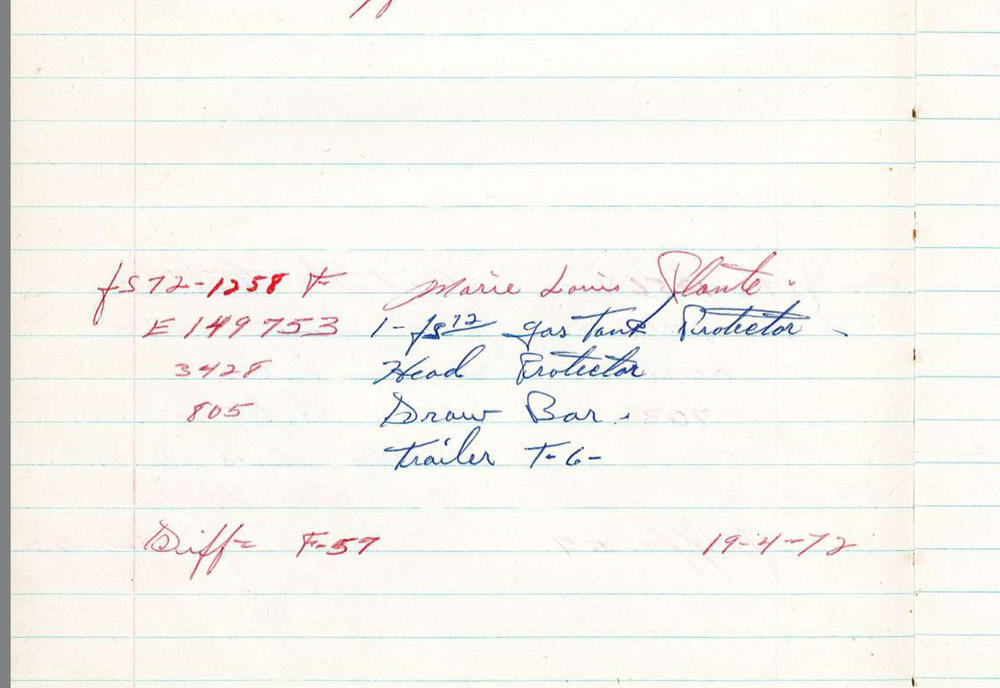 fS72-1258 F Marie Louis Plante.
E 149753 1-fs12 gas Tank Protector
3428 Head Protector
805 Draw Bar.
trailer T-6-
Diff= F-57 19-4-72